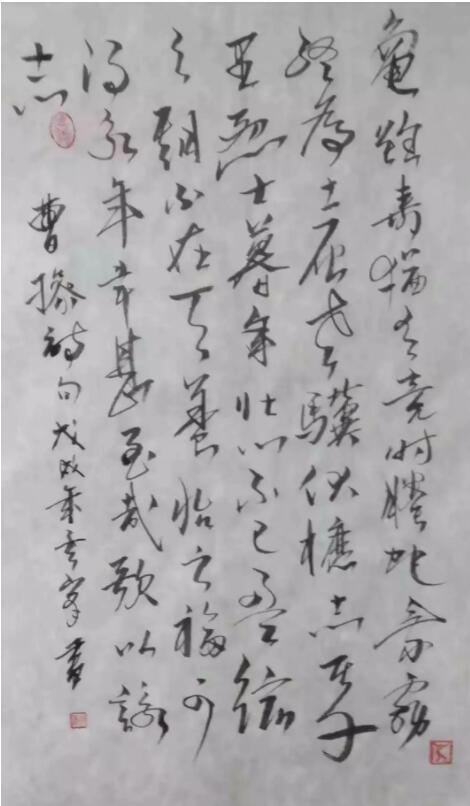 龜雖壽猶有竟时騰蛇乘霧
終為土灰老驥伏櫪志在千
里烈士暮年壯心不已盈縮
之期不在天養怡之福可
得永年幸甚至哉歌以詠
志
曹操詩句戊戌年書